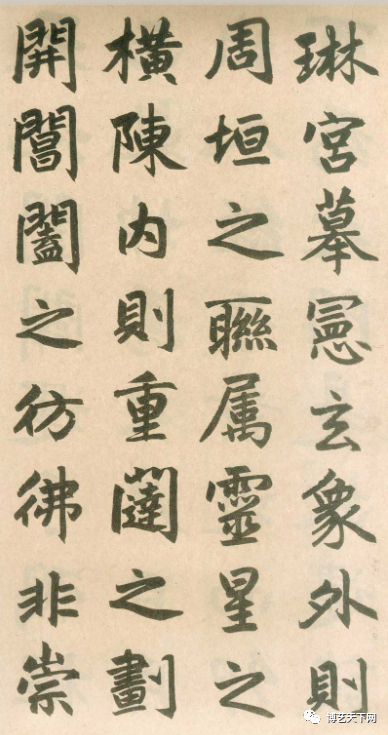 琳宮摹憲玄象外則
周垣之聯属靈星之
橫陳内則重闥之劃
開閶闔之彷彿非崇
博艺天下网